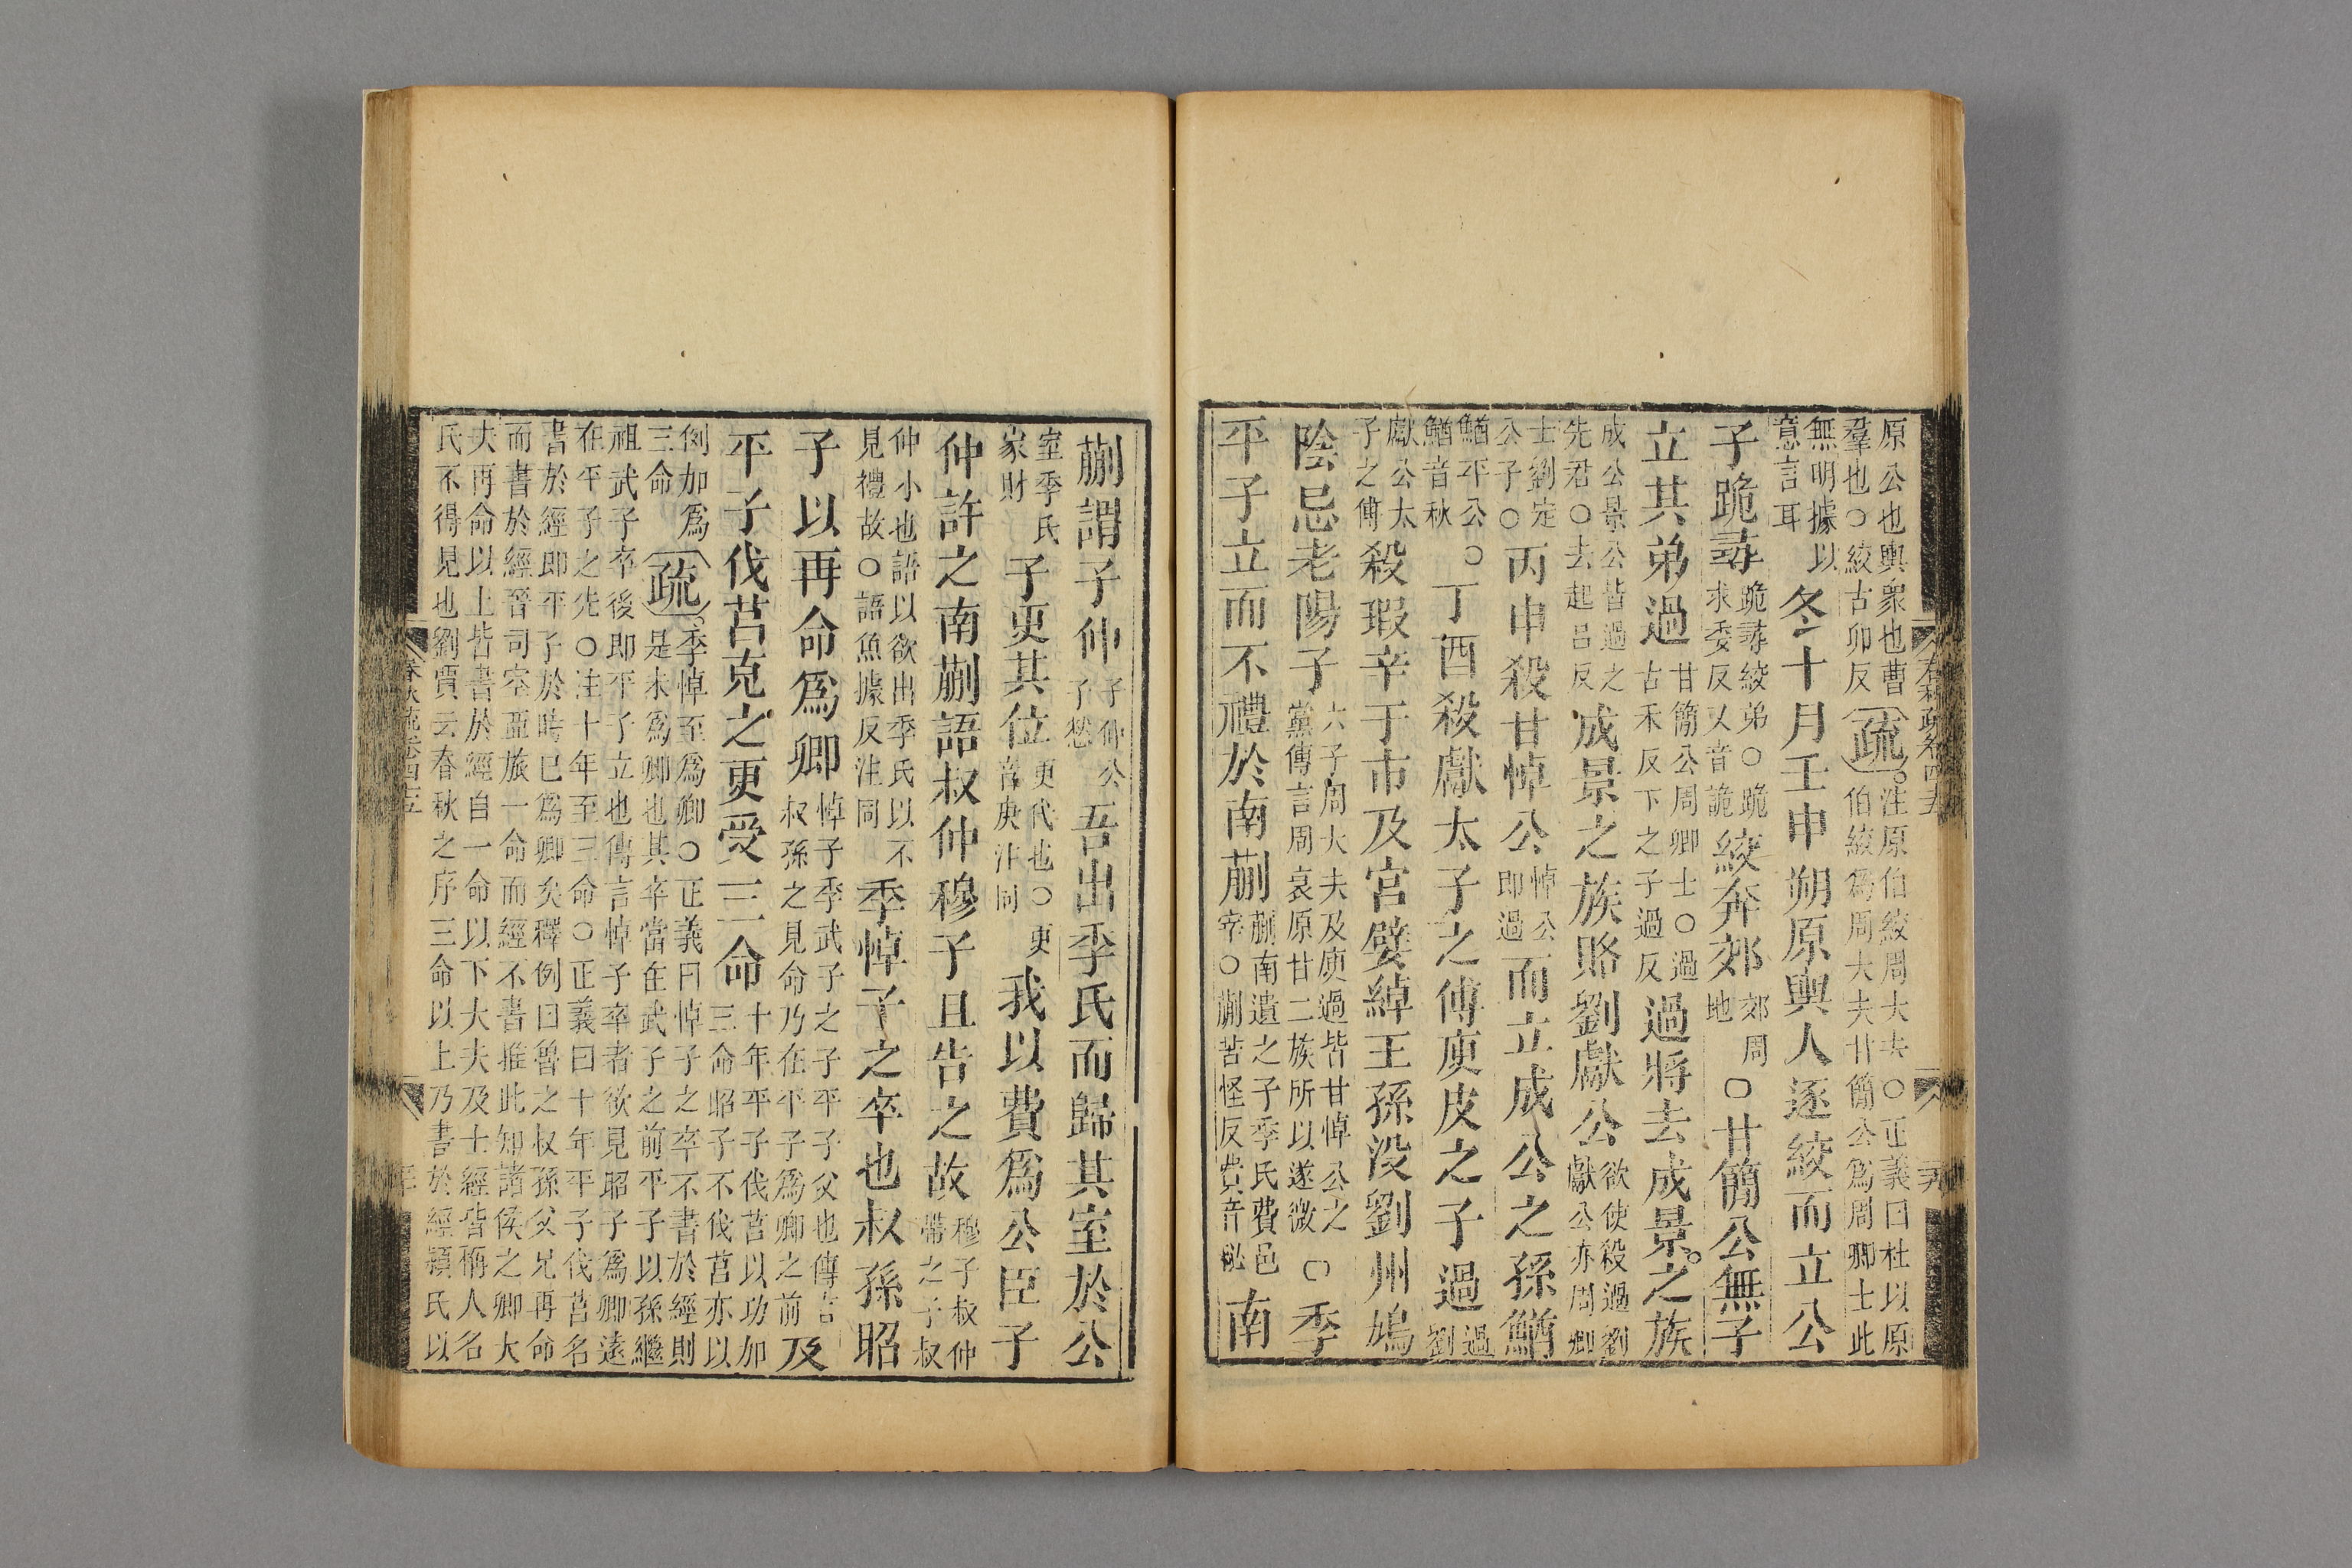 原公也輿衆也曹羣也○絞古卯反疏注原伯絞周大夫○正義曰杜以原伯絞爲周大夫甘簡公爲周卿士此
無明據以意言耳冬十月壬申朔原輿人逐絞而立公
子跪尋跪尋絞弟○跪求委反又音詭絞奔郊郊周地○甘簡公無子
立其弟過甘簡公周卿士○過古禾反下之子過反過將去成景之族
成公景公皆過之先君○去起呂反成景之族賂劉獻公欲使殺過劉獻公亦周卿
士劉定公子○丙申殺甘悼公悼公即過而立成公之孫鰌
鰌平公○鰌音秋丁酉殺獻太子之傅庾皮之子過過劉
獻公太子之傅殺瑕辛于市及宮嬖綽王孫没劉州鳩
陰忌老陽子六子周大夫及庾過皆甘悼公之黨傳言周衰原甘二族所以遂微○季
平子立而不禮於南蒯蒯南遺之子季氏費邑宰○蒯苦怪反費音祕南
蒯謂子仲子仲公子憖吾出季氏而歸其室於公
室季氏家財子更其位更代也○更音庚注同我以費爲公臣子
仲許之南蒯語叔仲穆子且告之故穆子叔仲帶之子叔
仲小也語以欲出季氏以不見禮故○語魚據反注同季悼子之卒也叔孫昭
子以再命爲卿悼子季武子之子平子父也傳言叔孫之見命乃在平子爲卿之前及
平子伐莒克之更受三命十年平子伐莒以功加三命昭子不伐莒亦以
例加爲三命疏季悼至爲卿○正義曰悼子之卒不書於經則是未爲卿也其卒當在武子之前平子以孫繼
祖武子卒後即平子立也傳言悼子卒者欲見昭子爲卿遠在平子之先○注十年至三命○正義曰十年平子伐莒名
書於經即平子於時已爲卿矣釋例曰魯之叔孫父兄再命而書於經晉司空亞旅一命而經不書推此知諸侯之卿大
夫再命以上皆書於經自一命以下大夫及士經皆稱人名氏不得見也劉賈云春秋之序三命以上乃書於經穎氏以